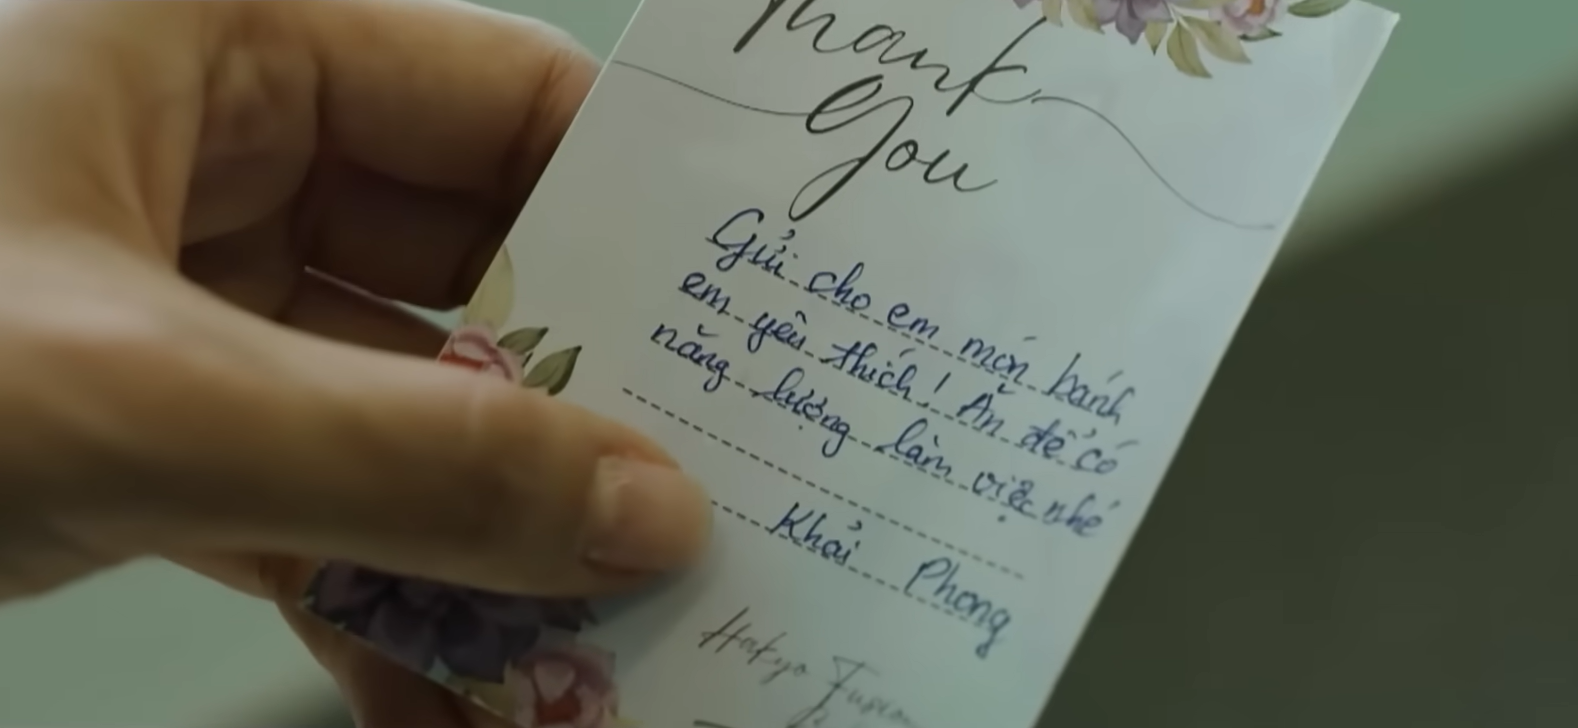 Thank
You
Gửi cho em món bánh
em yêu thích! Ăn để có
năng lượng làm việc nhé
Khải Phong
Hakyo Fusion